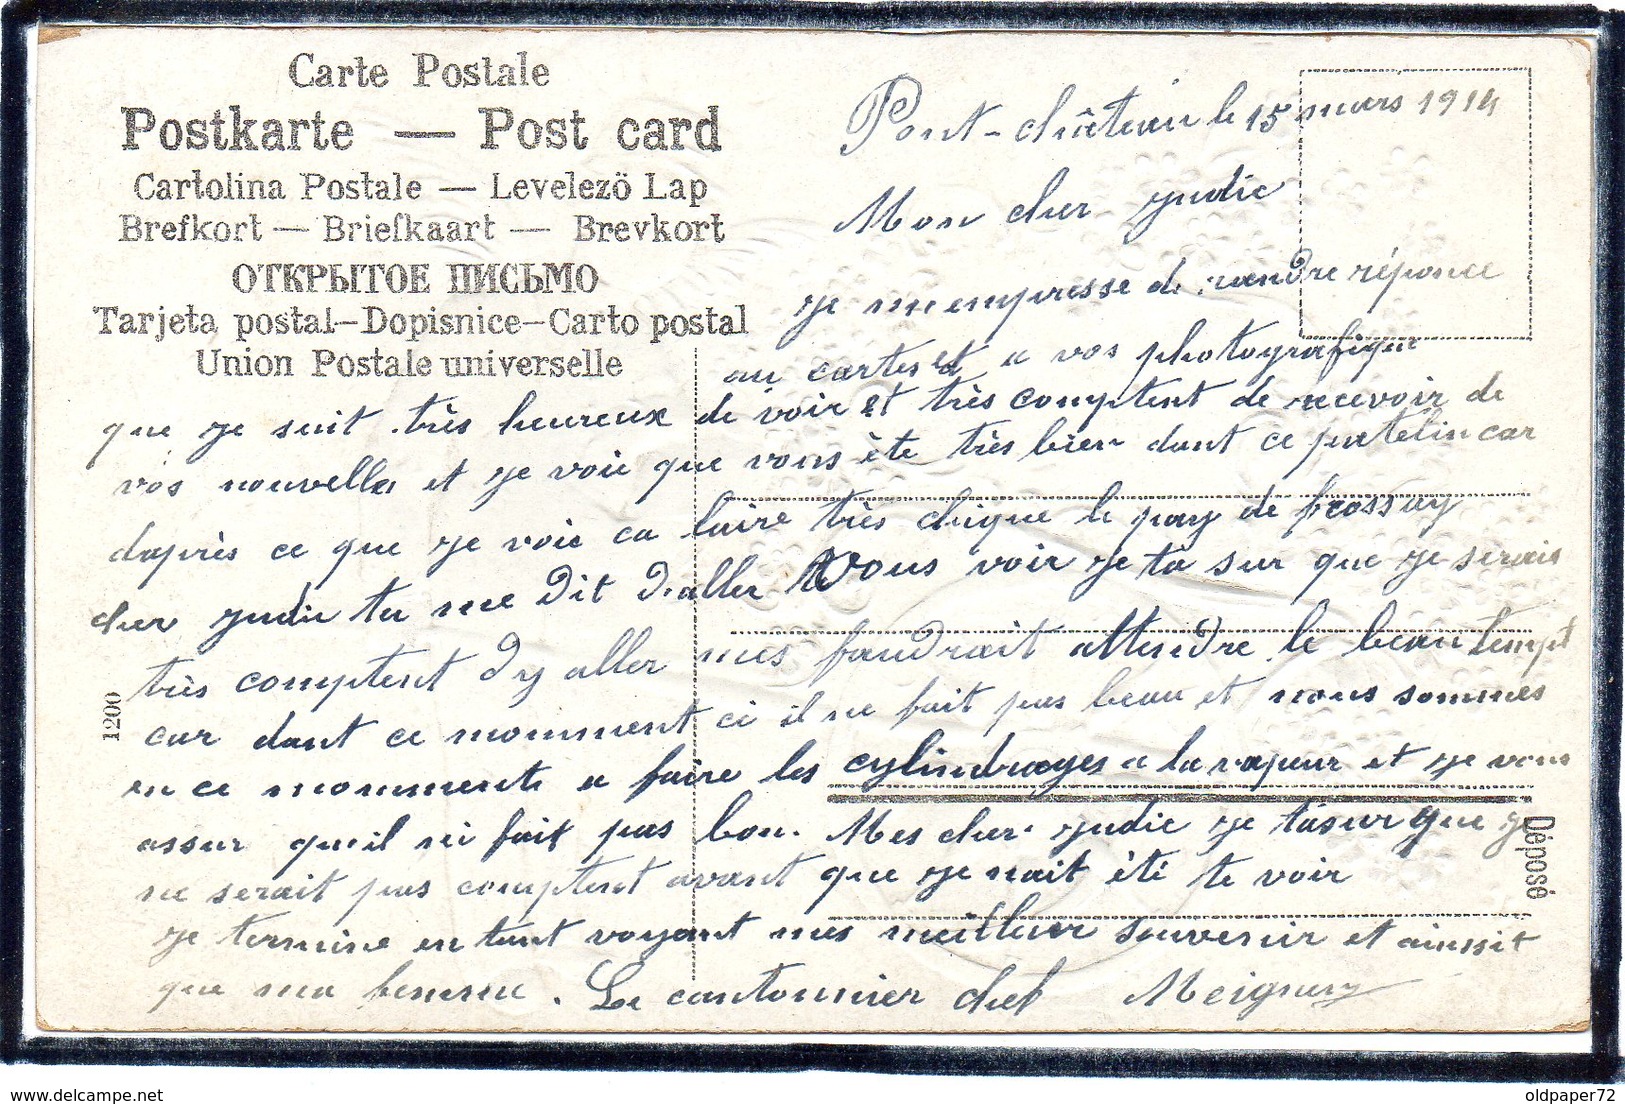 Carte Postale
Postkarte — Post card
Cartolina Postale — Levelezö Lap
Brefkort — Briefkaart — Brevkort
ОТКРЫТОЕ ПИСЬМО
Tarjeta postal–Dopisnice–Carto postal
Union Postale universelle
Pont-château le 15 mars 1914
Mon cher judic
je mempresse de rendre réponce
au cartes et a vos photografique
que je suit très heureux de voir et très comptent de recevoir de
vos nouvelle et je voie que vous ète très bien dant ce patelin car
daprès ce que je voie ca laire très chique le pay de frossay
cher judic tu me dit d'aller vous voir je ta sur que je serais
très comptent d'y aller mes faudrait attendre le beau tempt
car dant ce momment ci il ne fait pas beau et nous sommes
en ce momment a faire les cylindrages a la vapeur et je vous
assur qu'il ni fait pas bon. Mes cher judic je tasur que je
ne serait pas comptent avant que je nait été te voir
je termine en tant voyant mes meilleur souvenir et ainssit
que ma femme. Le cantonnier chef Meignen
1200
Déposé
delcampe.net
oldpaper72